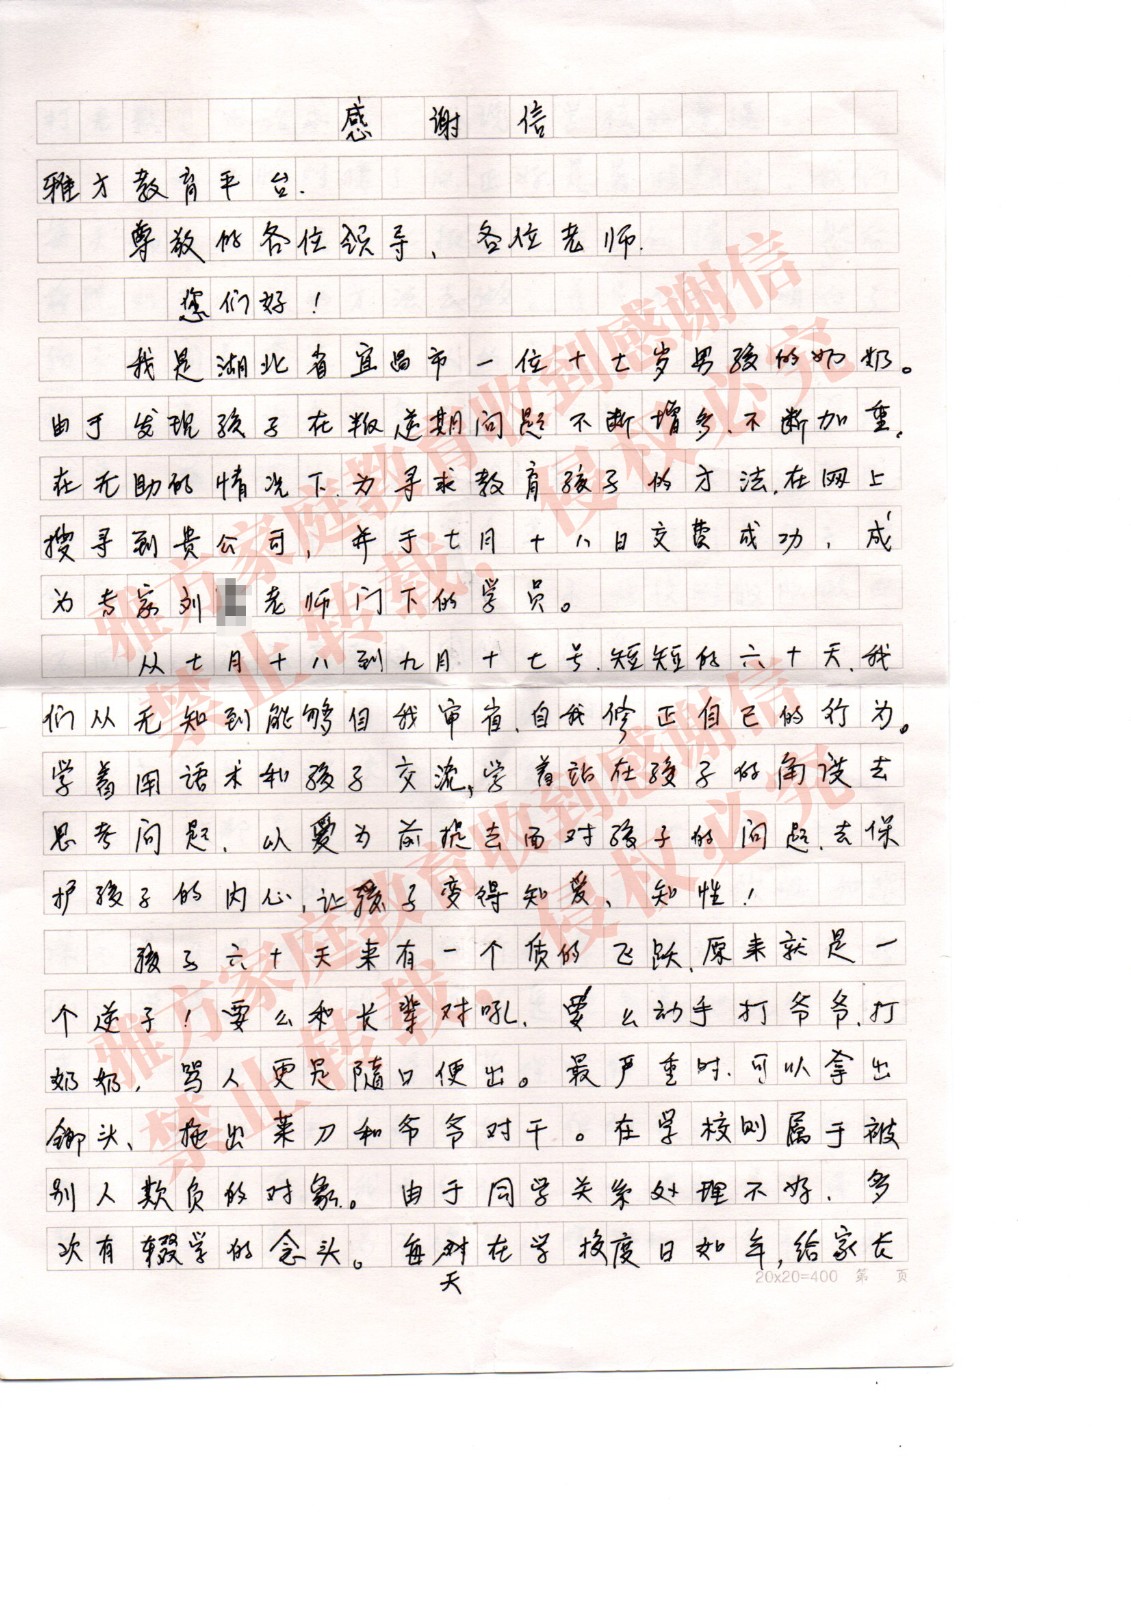 感谢信
雅方教育平台.
尊敬的各位领导、各位老师.
您们好!
我是湖北省宜昌市一位十七岁男孩的奶奶。
由于发现孩子在叛逆期问题不断增多、不断加重,
在无助的情况下、为寻求教育孩子的方法,在网上
搜寻到贵公司,并于七月十八日交费成功,成
为专家刘 老师门下的学员。
从七月十八到九月十七号、短短的六十天、我
们从无知到能够自我审省、自我修正自己的行为。
学着用语术和孩子交流,学着站在孩子的角度去
思考问题、以爱为前提去面对孩子的问题、去保
护孩子的内心,让孩子变得知爱、知性!
孩子六十天来有一个质的飞跃、原来就是一
个逆子!要么和长辈对吼、要么动手打爷爷、打
奶奶,骂人更是随口便出。最严重时、可以拿出
榔头、拖出菜刀和爷爷对干。在学校则属于被
别人欺负的对象。由于同学关系处理不好、多
次有辍学的念头。每天在学校度日如年,给家长
20x20=400 第 页
雅方家庭教育收到感谢信
禁止转载,侵权必究
雅方家庭教育收到感谢信
禁止转载,侵权必究